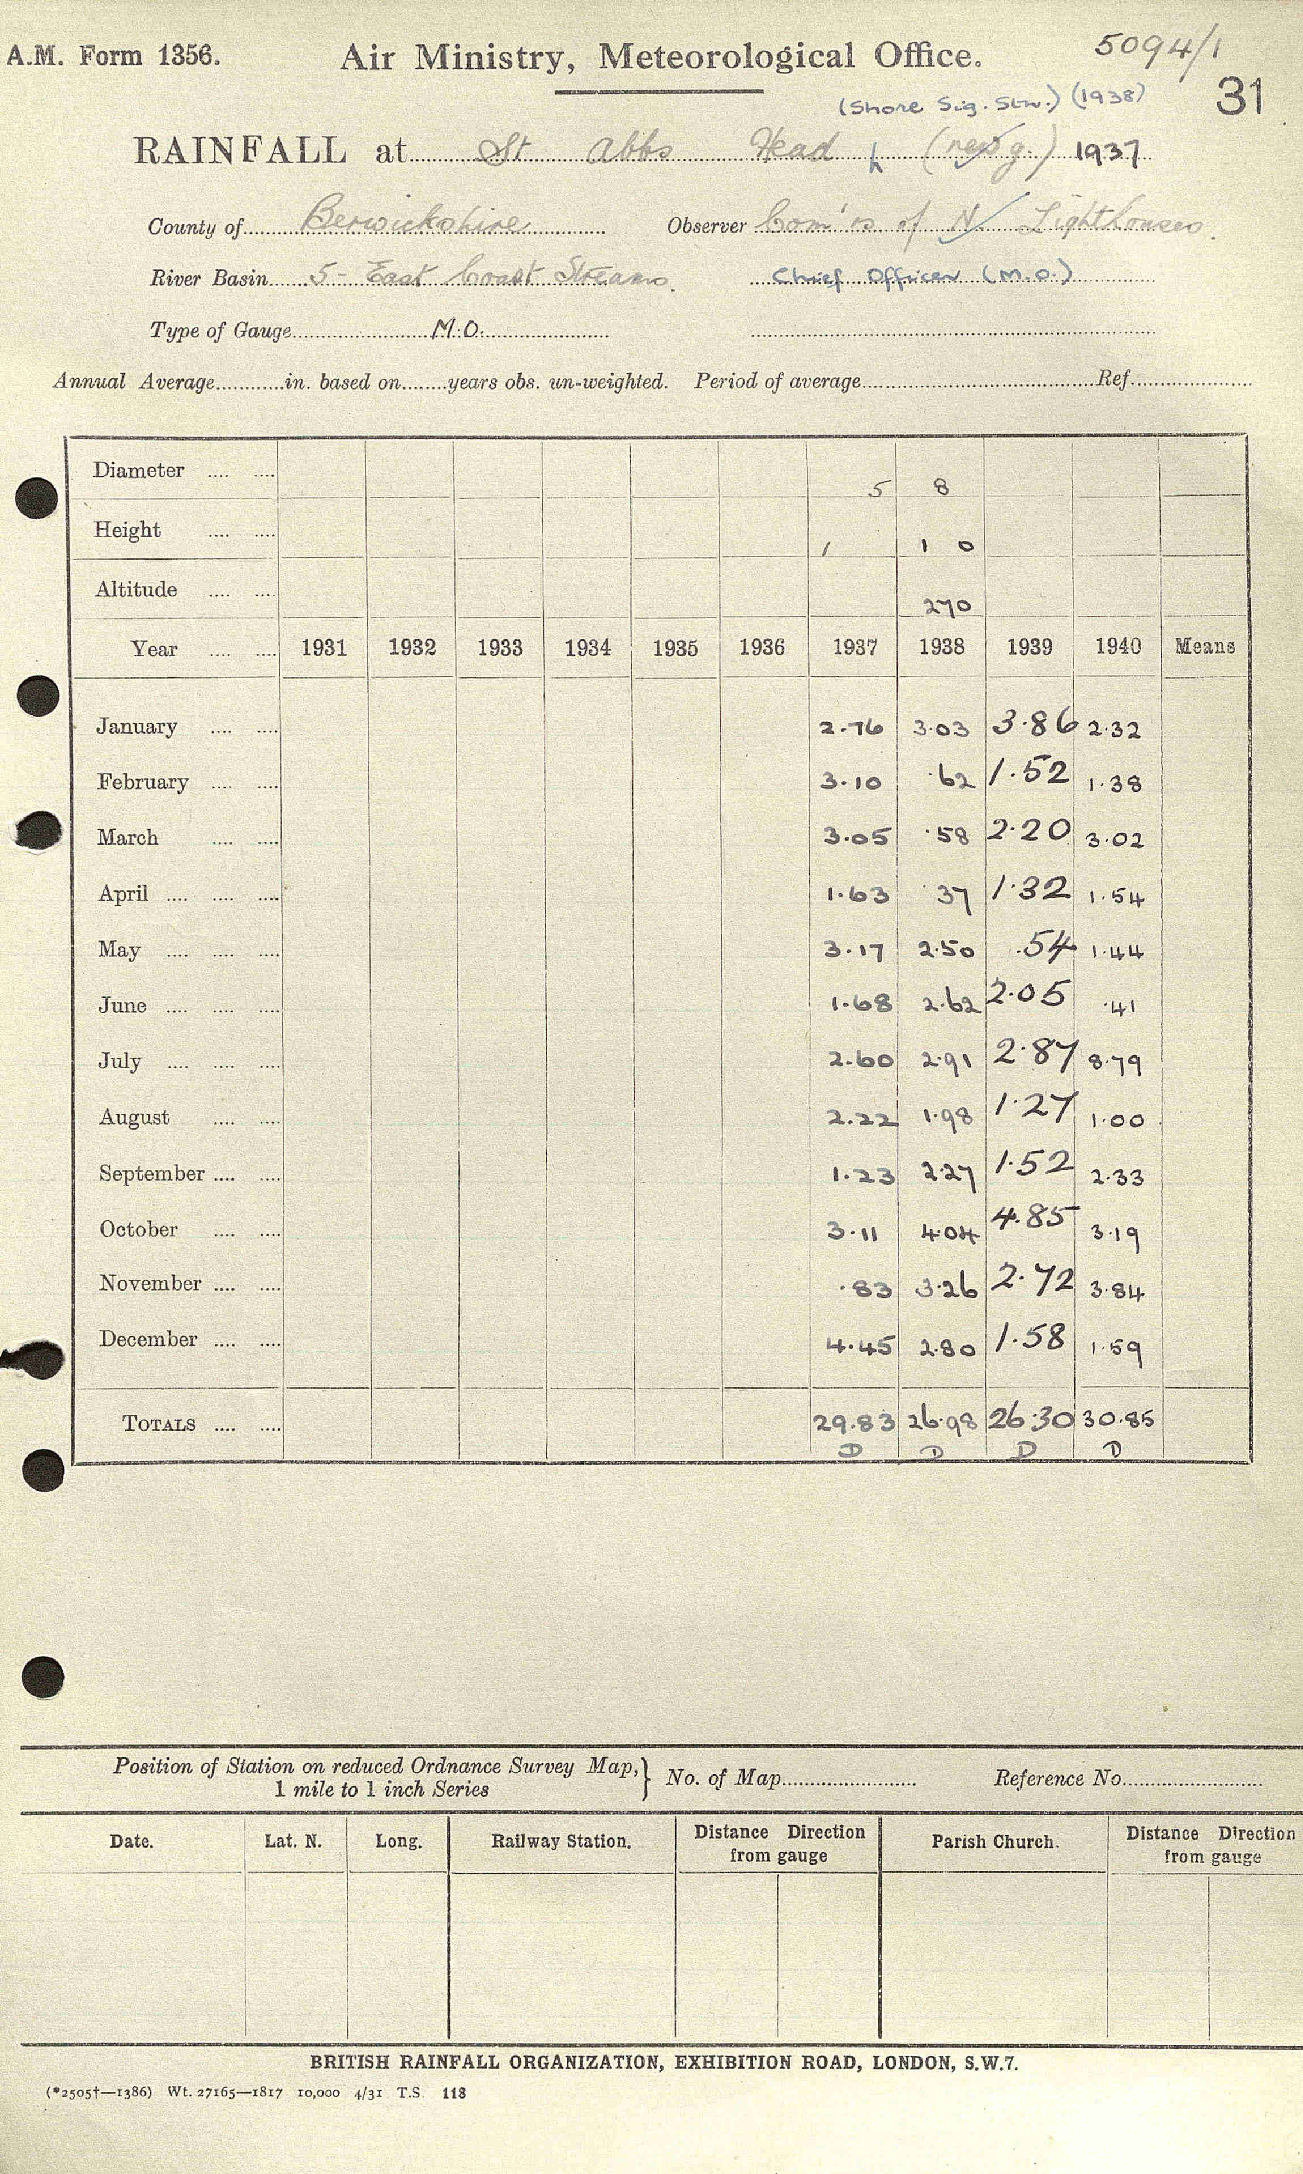 A.M. Form 1356.
Air Ministry, Meteorological Office.
5094/1
31
(Shore Sig. Stn.) (1938)
RAINFALL at St Abbs Head (new g.) 1937
County of Berwickshire Observer Com'rs of N. Lighthouses.
River Basin 5 - East Coast Streams. Chief Officer (M.O.)
Type of Gauge M.O.
Annual Average in. based on years obs. un-weighted. Period of average Ref.
Diameter 5 8
Height 1 1 0
Altitude 270
Year 1931 1932 1933 1934 1935 1936 1937 1938 1939 1940 Means
January 2.76 3.03 3.86 2.32
February 3.10 .62 1.52 1.38
March 3.05 .58 2.20 3.02
April 1.63 .37 1.32 1.54
May 3.17 2.50 .54 1.44
June 1.68 2.62 2.05 .41
July 2.60 2.91 2.87 8.79
August 2.22 1.98 1.27 1.00
September 1.23 2.27 1.52 2.33
October 3.11 4.04 4.85 3.19
November .83 3.26 2.72 3.84
December 4.45 2.80 1.58 1.59
TOTALS 29.83 26.98 26.30 30.85
D D D D
Position of Station on reduced Ordnance Survey Map, } No. of Map Reference No.
1 mile to 1 inch Series
Date. Lat. N. Long. Railway Station. Distance Direction from gauge Parish Church. Distance Direction from gauge
BRITISH RAINFALL ORGANIZATION, EXHIBITION ROAD, LONDON, S.W.7.
(*2505†—1386) Wt. 27165—1817 10,000 4/31 T.S. 118